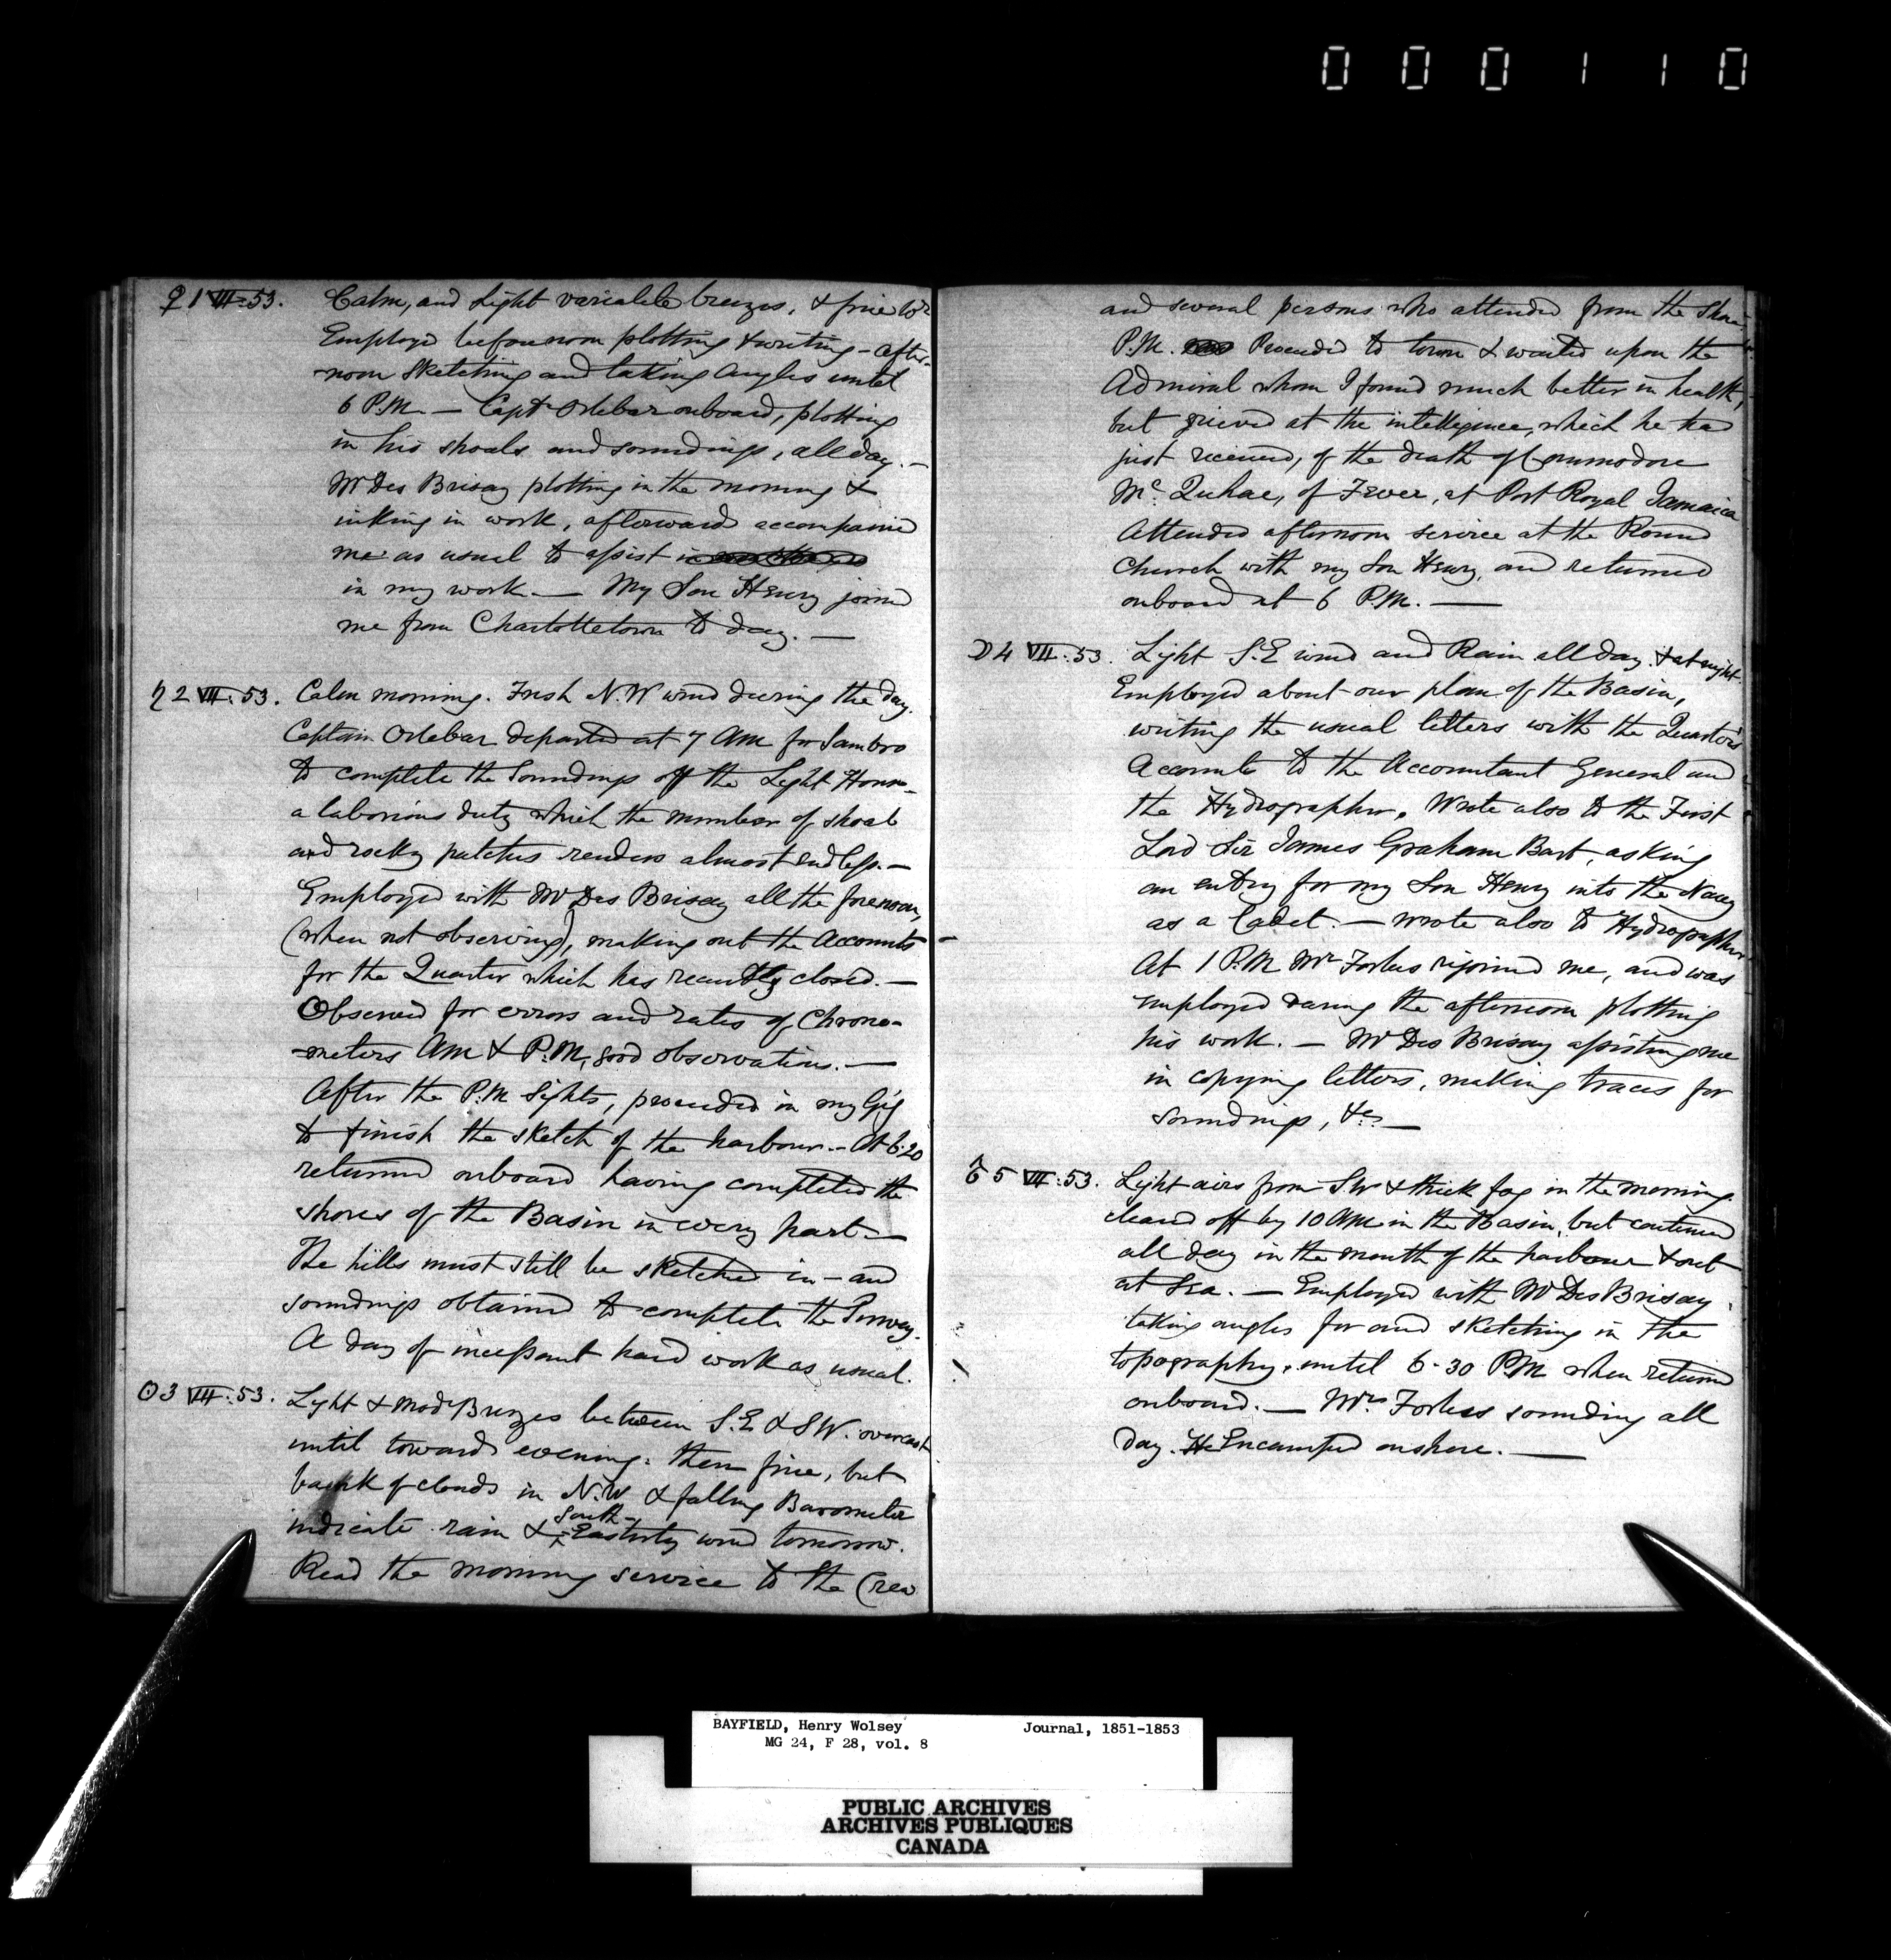 000110
♀ 1 VII. 53. Calm, and Light variable breezes, & fine Wr
Employed before noon plotting & writing - after-
-noon sketching and taking angles until
6 P.M. — Captn Orlebar onboard, plotting
in his shoals and soundings, all day. —
Mr Des Brisay plotting in the morning &
inking in work, afterwards accompanied
me as usual to assist in
in my work. — My Son Henry joined
me from Charlottetown to day. —
♄ 2 VII. 53. Calm morning. Fresh N.W wind during the day.
Captain Orlebar departed at 7 AM for Sambro
to complete the Soundings off the Light House -
a laborious duty which the number of shoal
and rocky patches renders almost endless. —
Employed with Mr Des Brisay all the forenoon,
(when not observing), making out the Accounts
for the Quarter which has recently closed. —
Observed for errors and rates of Chrono-
-meters AM & P.M, good observations. —
After the P.M Sights, proceeded in my Gig
to finish the sketch of the harbour. - At 6.20
returned onboard having completed the
shores of the Basin in every part —
The hills must still be sketched in - and
soundings obtained to complete the Survey.
A day of incessant hard work as usual.
☉ 3 VII. 53. Light & Modr Breezes between S.E & SW. overcast
until towards evening. then fine, but
bank of clouds in N.W & falling Barometer
indicate rain & South-Easterly wind tomorrow.
Read the morning service to the Crew
and several persons who attended from the Shore.
P.M. Proceeded to town & waited upon the
Admiral whom I found much better in health,
but grieved at the intelligence, which he had
just received, of the death of Commodore
Mc Quhae, of Fever, at Port Royal Jamaica
Attended afternoon service at the Round
Church with my Son Henry, and returned
onboard at 6 P.M. —
☽ 4 VII. 53. Light S.E wind and Rain all day. & at night.
Employed about our plan of the Basin,
writing the usual letters with the Quarter's
Accounts to the Accountant General and
the Hydrographer. Wrote also to the First
Lord Sir James Graham Bart, asking
an entry for my Son Henry into the Navy
as a Cadet. — Wrote also to Hydrographer
At 1 P.M Mr Forbes rejoined me, and was
employed during the afternoon plotting
his work. — Mr Des Brisay assisting me
in copying letters, making traces for
soundings, &c. —
♂ 5 VII. 53. Light airs from SW & thick fog in the morning
cleared off by 10 AM in the Basin, but continued
all day in the mouth of the harbour & out
at Sea. — Employed with Mr Des Brisay
taking angles for and sketching in the
topography, until 6.30 PM when returned
onboard. — Mr Forbes sounding all
day. He Encamped on shore. —
BAYFIELD, Henry Wolsey Journal, 1851-1853
MG 24, F 28, vol. 8
PUBLIC ARCHIVES
ARCHIVES PUBLIQUES
CANADA